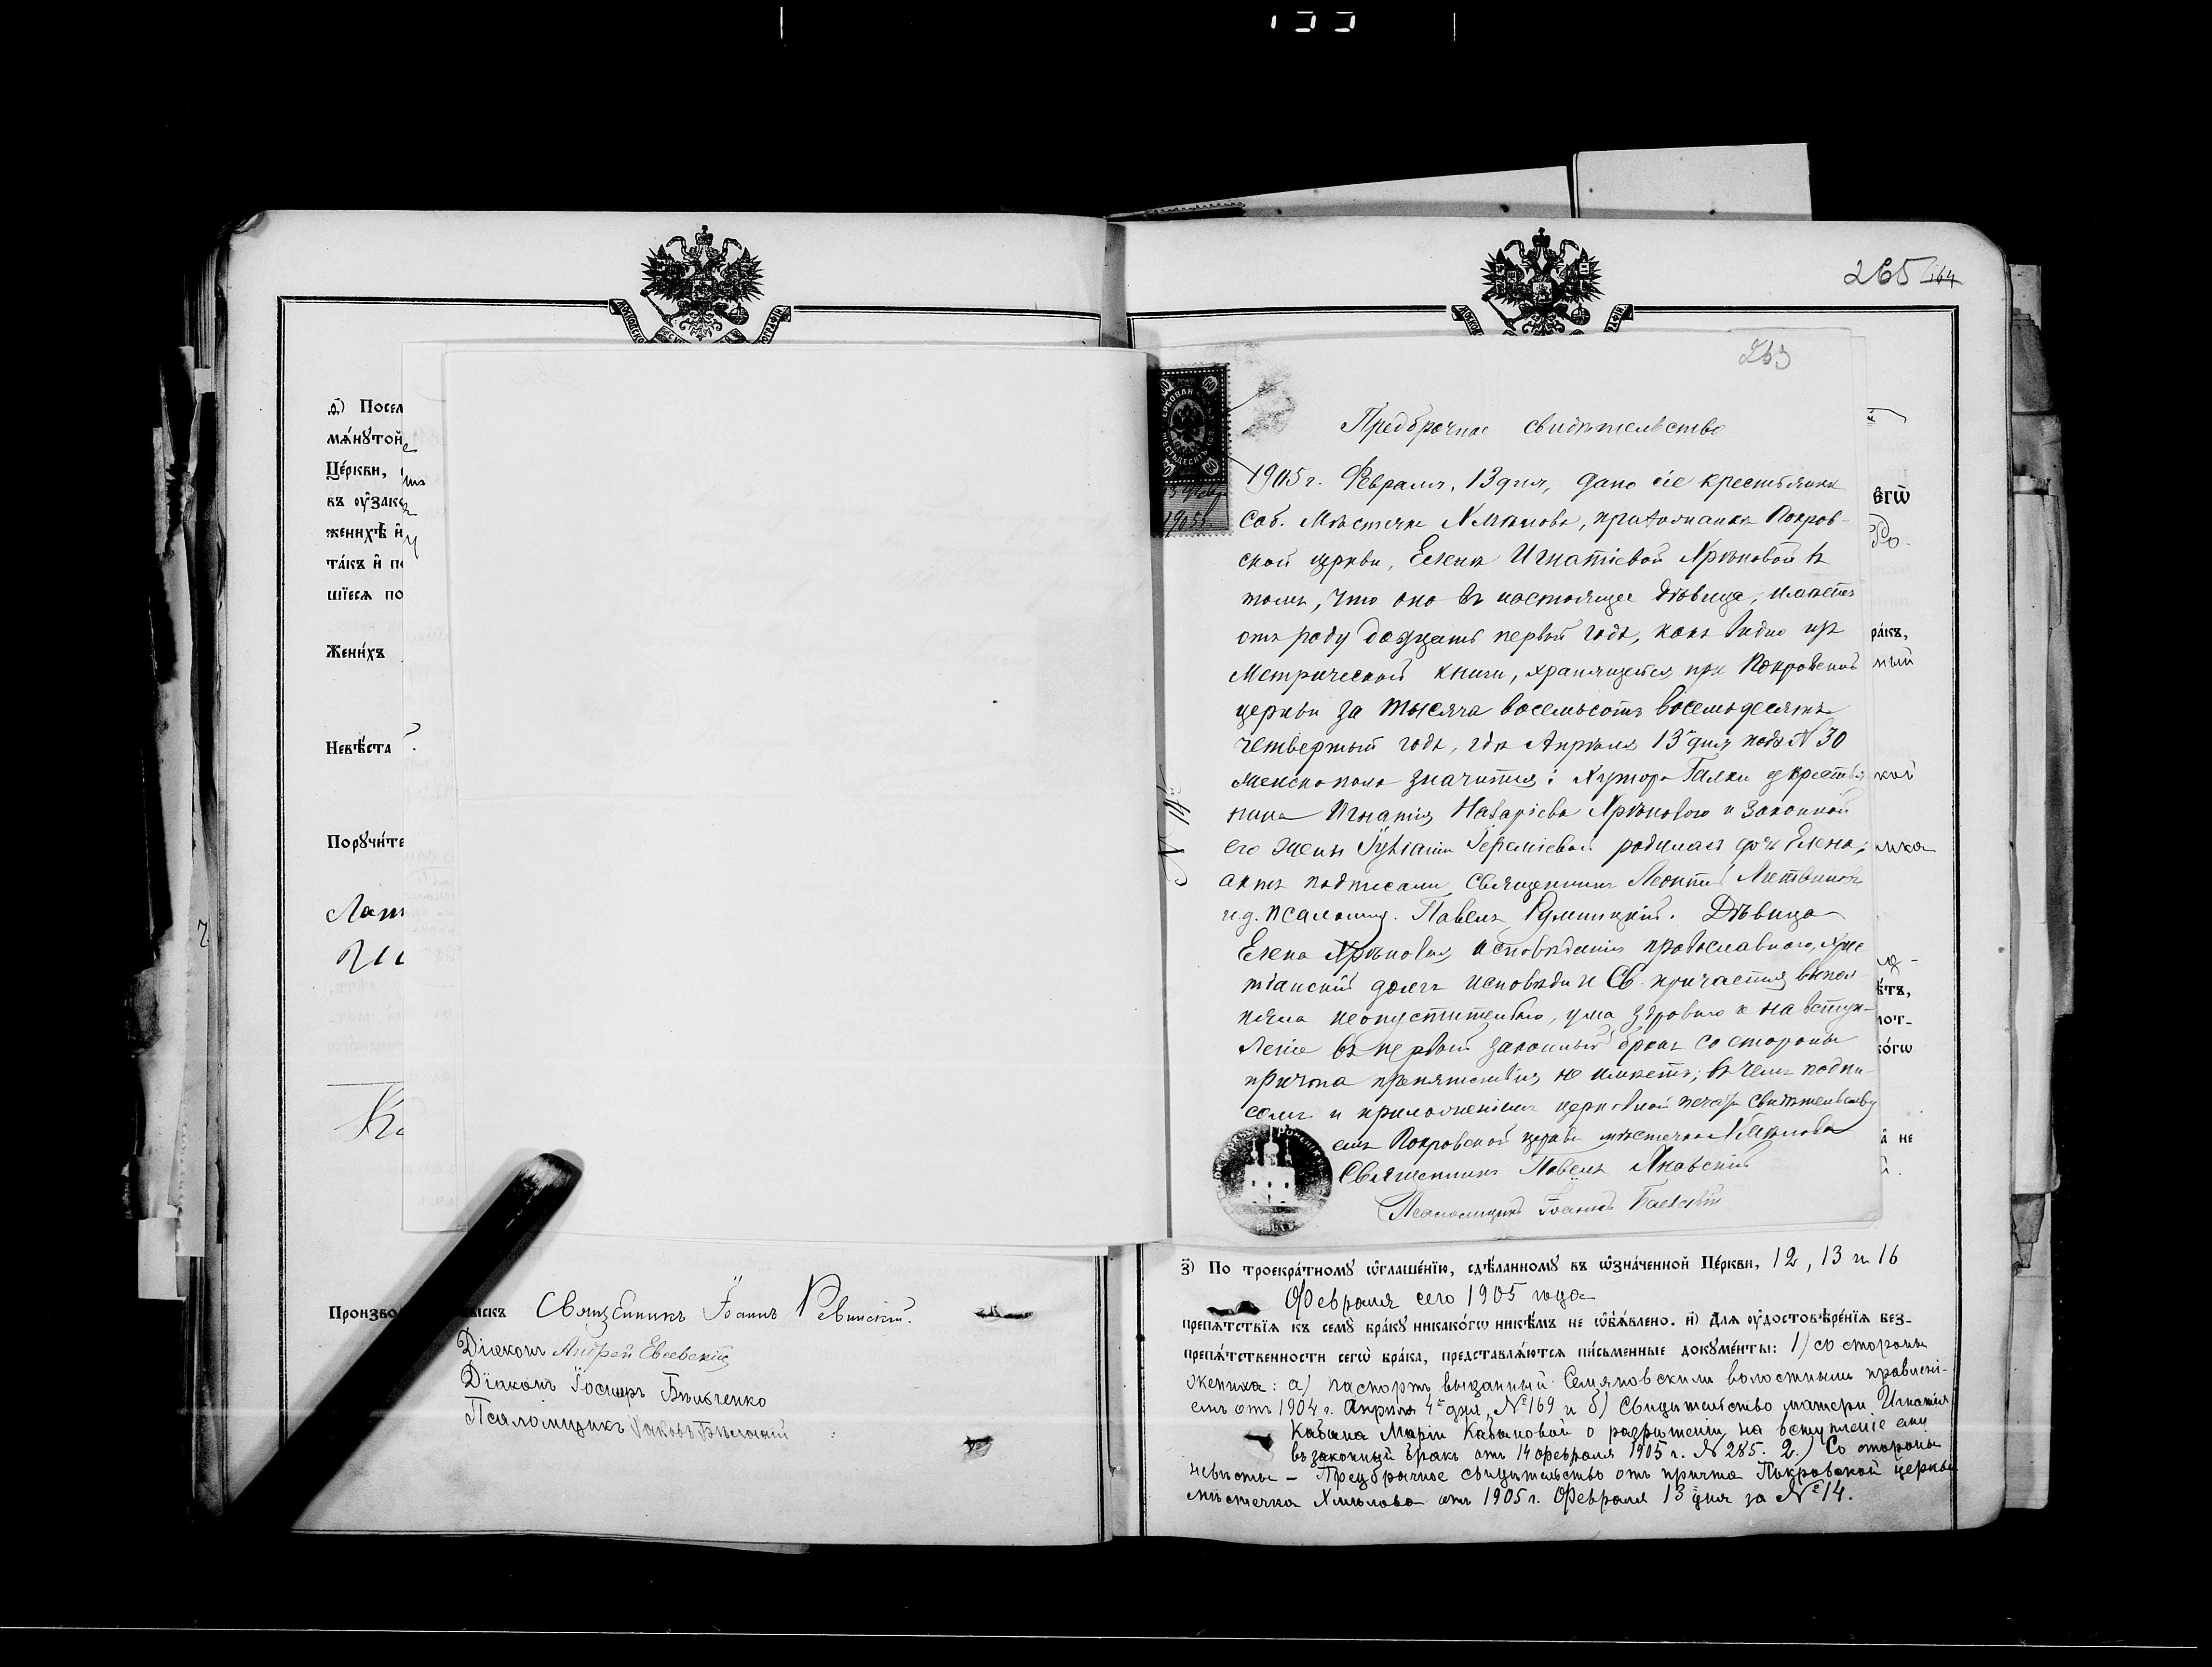 265 164
263
д҃) Посел
мѧ́нутой
Це́ркви,
въ оу҆зако
женихѣ̀ и҆
та́къ и҆ по
шїесѧ по
Жени́хъ
Невѣ́ста
Порꙋчи́те
Лап
Ка
Произво ыскъ Священникъ Іоаннъ Ревинскій.
Діаконъ Андрей Евсевскій
Діаконъ Іосифъ Бѣльченко
Псаломщикъ Іаковъ
ГЕРБОВАЯ МАРКА
ШЕСТЬДЕСЯТЪ КОП.
60
13 Февр
1905 г.
№ 14
Предбрачное свидѣтельство
1905 г. Февраля, 13 дня, дано сіе крестьянкѣ
соб. Мѣстечка Хмѣлова, прихожанкѣ Покров-
ской церкви, Еленѣ Игнатіевой Хрѣновой въ
томъ, что она въ настоящее дѣвица, имѣетъ
отъ роду двадцать первый годъ, какъ видно изъ
Метрической книги, хранящейся при Покровской
церкви за тысяча восемьсотъ восемьдесятъ
четвертый годъ, гдѣ Апрѣля 13 дня подъ № 30
женскаго пола значится: Хутора Галки у крестья
нина Игнатія Назаріева Хрѣнового и законной
его жены Іуліаніи Іереміевой родилась дочь Елена;
актъ подписали Священникъ Леонтій Литвиновъ
и.д. псаломщ. Павелъ Румницкій. Дѣвица
Елена Хрѣновая исповѣданія православнаго, хрис
тіанскій долгъ исповѣди и Св. причастія выпол
няла неопустительно, ума здраваго и на вступ-
леніе въ первый законный бракъ со стороны
причта препятствія не имѣетъ; въ чемъ подпи
сомъ и приложеніемъ церковной печати свидѣтельству
емъ Покровской церкви мѣстечка Хмѣлова
Священникъ Павелъ Яновскій
Псаломщикъ Іоаннъ Баевскій
вгѡ̀
ра́къ,
ный
кой
ѣтъ,
мот-
ко́гѡ
а҆ не
з҃) По троекра́тномꙋ ѡ҆глаше́нїю, сдѣ́ланномꙋ въ ѡ҆зна́ченной Це́ркви, 12, 13 и 16
Февраля сего 1905 года
препѧ́тствїѧ къ семꙋ̀ бра́кꙋ никако́гѡ никѣ́мъ не ѡ҆б̾ѧ́влено. и҃) Для оу҆достовѣре́нїѧ без-
препѧ́тственности сегѡ̀ бра́ка, представлѧ́ютсѧ пи́сьменные докꙋме́нты: 1) со стороны
жениха: а) паспортъ выданный Семяновскимъ волостнымъ правлені-
емъ отъ 1904 г. Апрѣля 4 дня, № 169 и б) Свидѣтельство матери Игнатія
Кабана Маріи Кабановой о разрѣшеніи на вступленіе ему
въ законный бракъ отъ 14 февраля 1905 г. № 285. 2.) Со стороны
невѣсты – Предбрачное свидѣтельство отъ причта Покровской церкви
мѣстечка Хмѣлова отъ 1905 г. Февраля 13 дня за № 14.